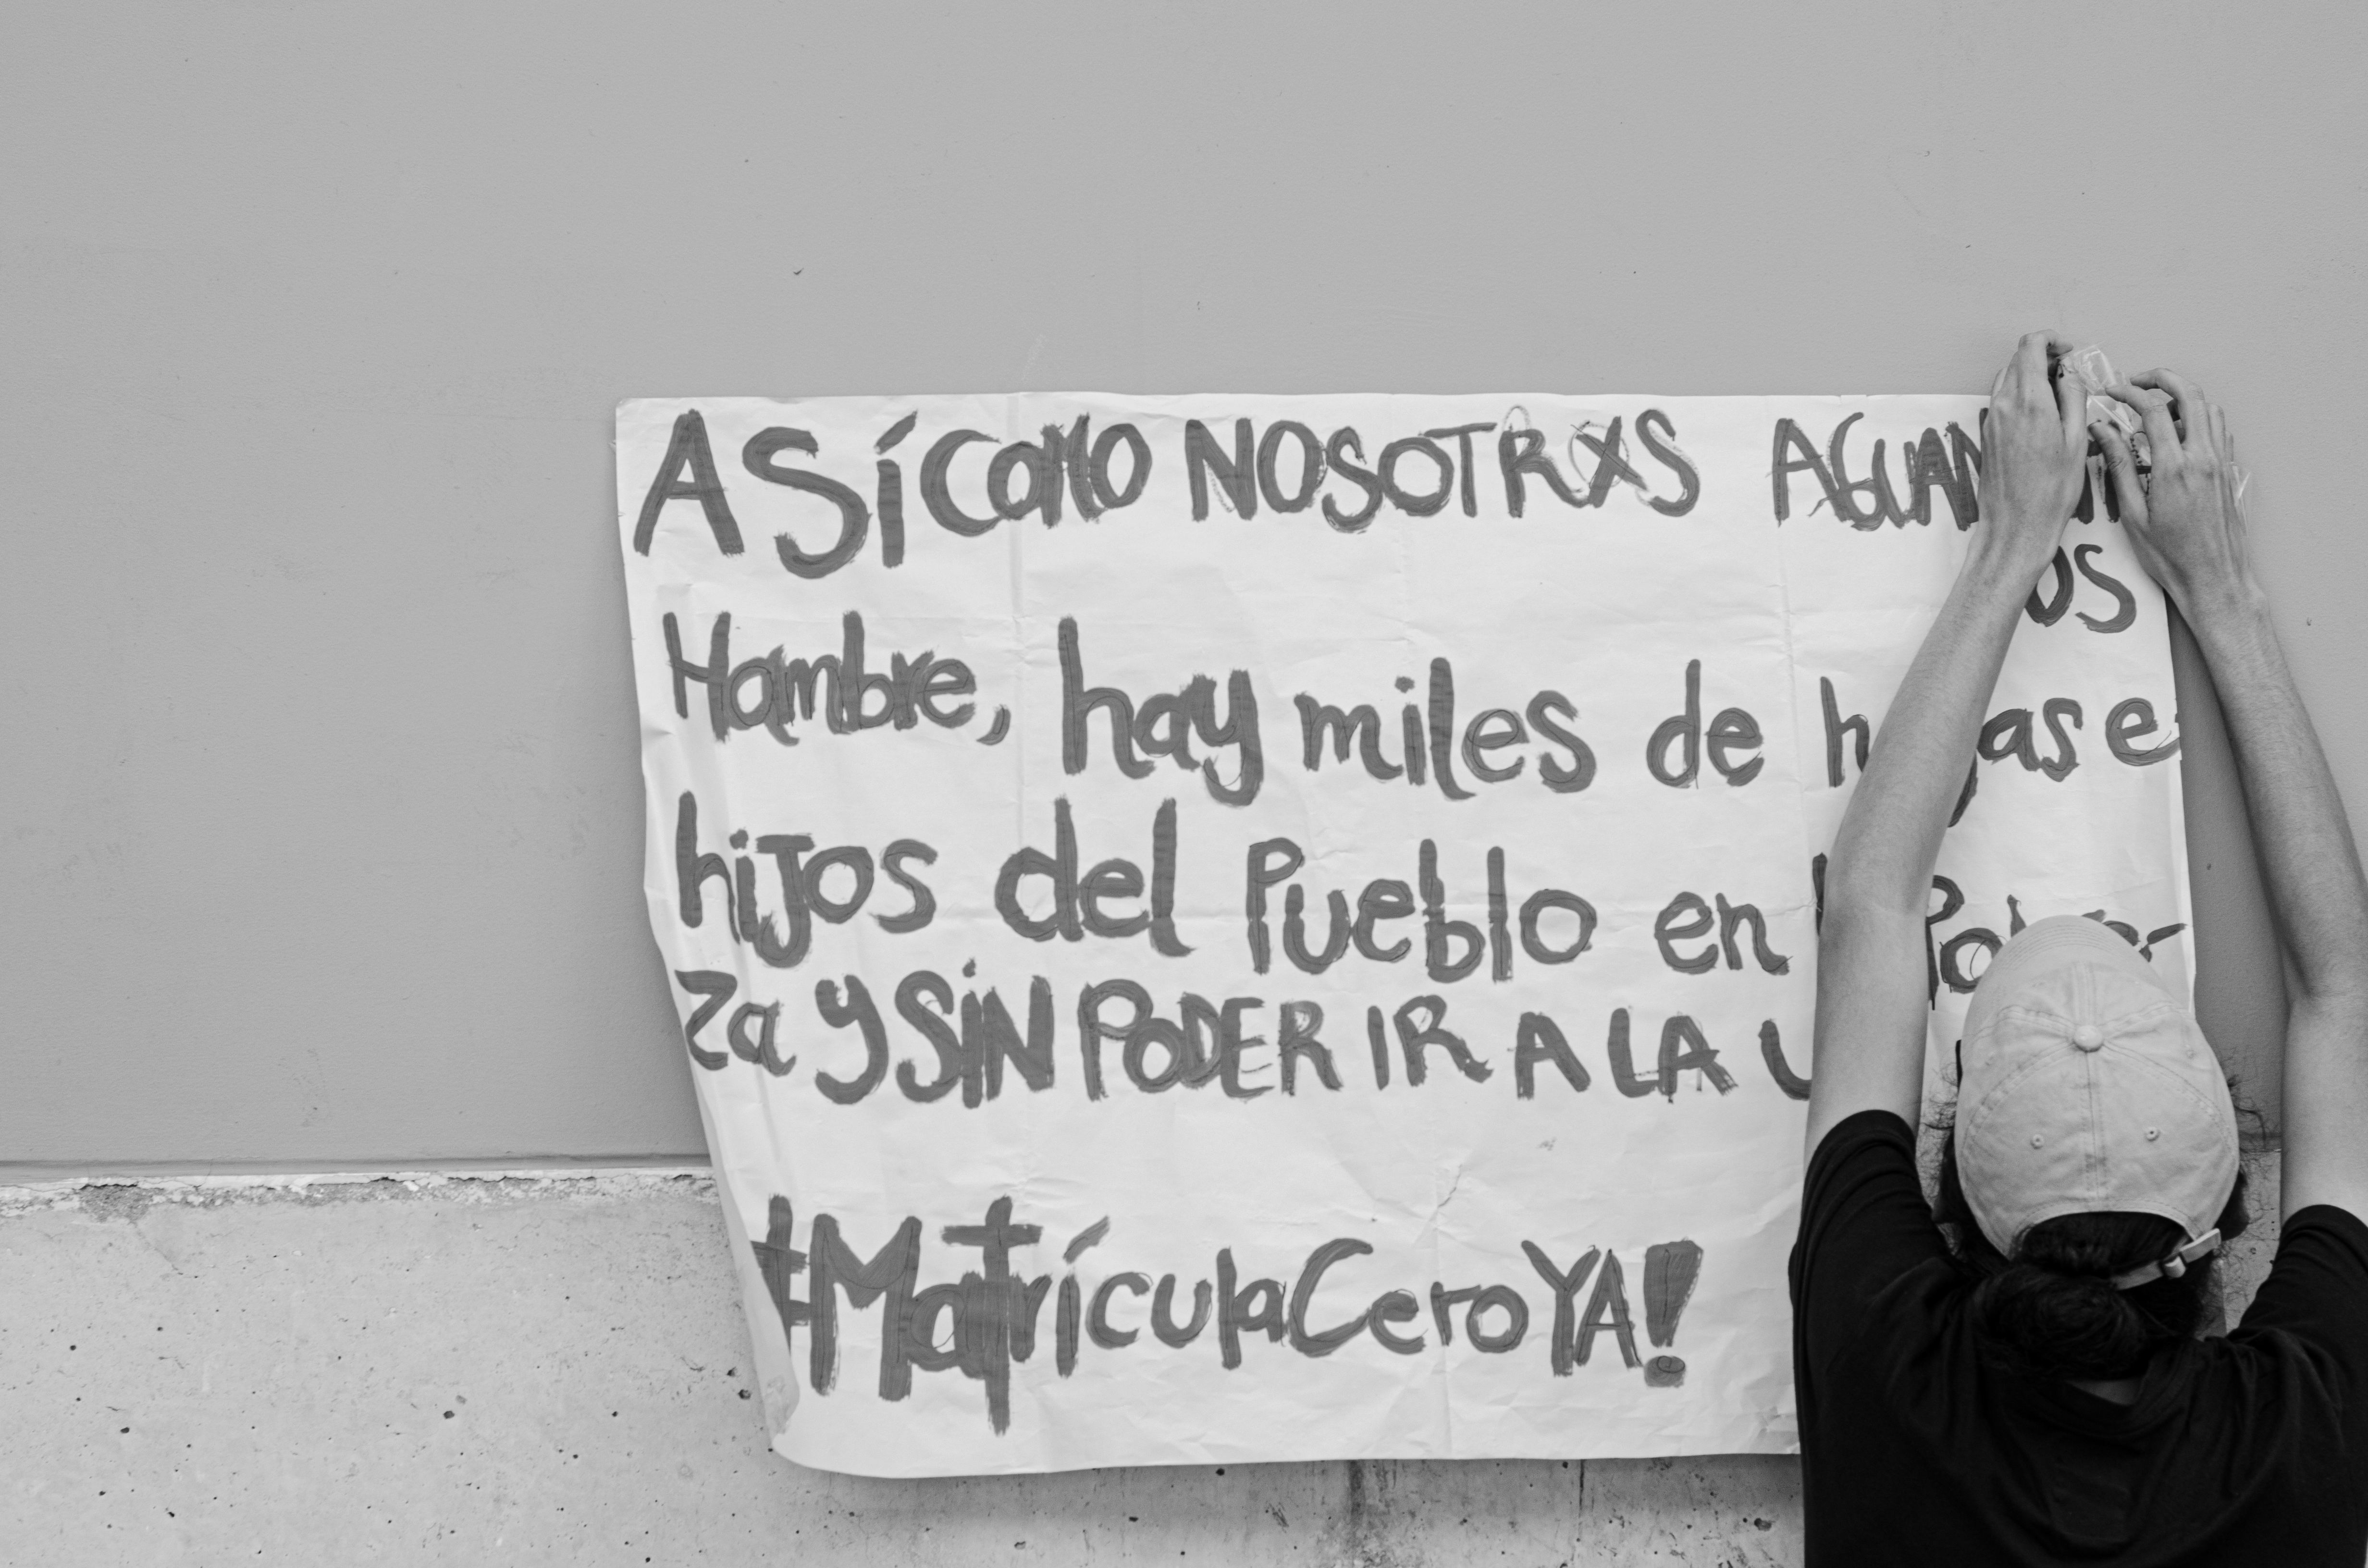 ASÍ COMO NOSOTRXS
Hambre, hay miles de
hijos del Pueblo en
za y SIN PODER IR A LA
#MatrículaCeroYA!